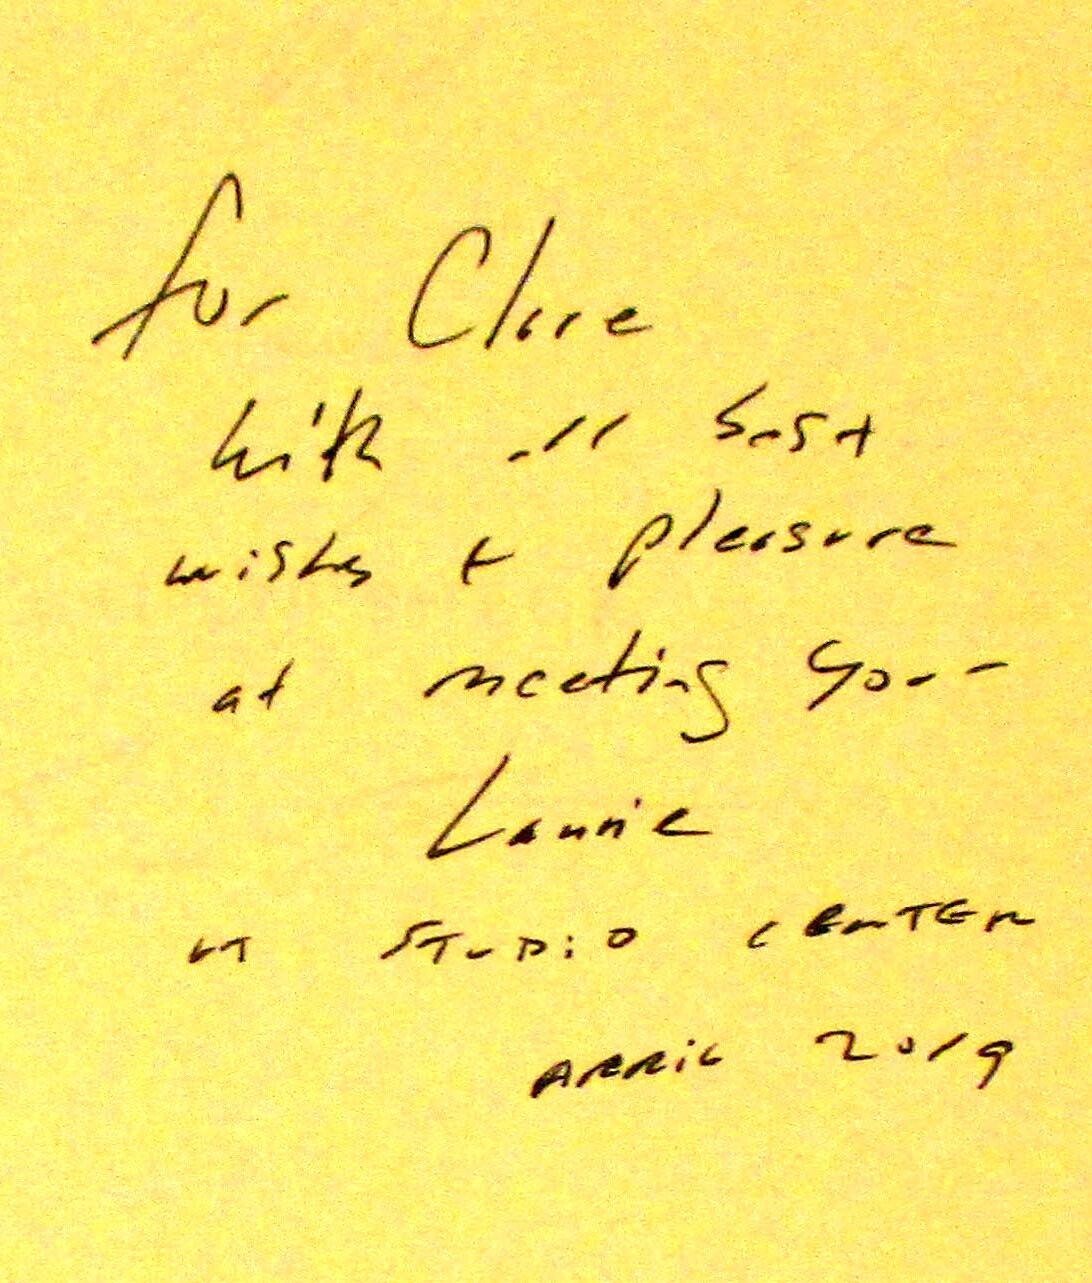 for Clare
with all best
wishes + pleasure
at meeting you -
Lannie
VT STUDIO CENTER
APRIL 2019